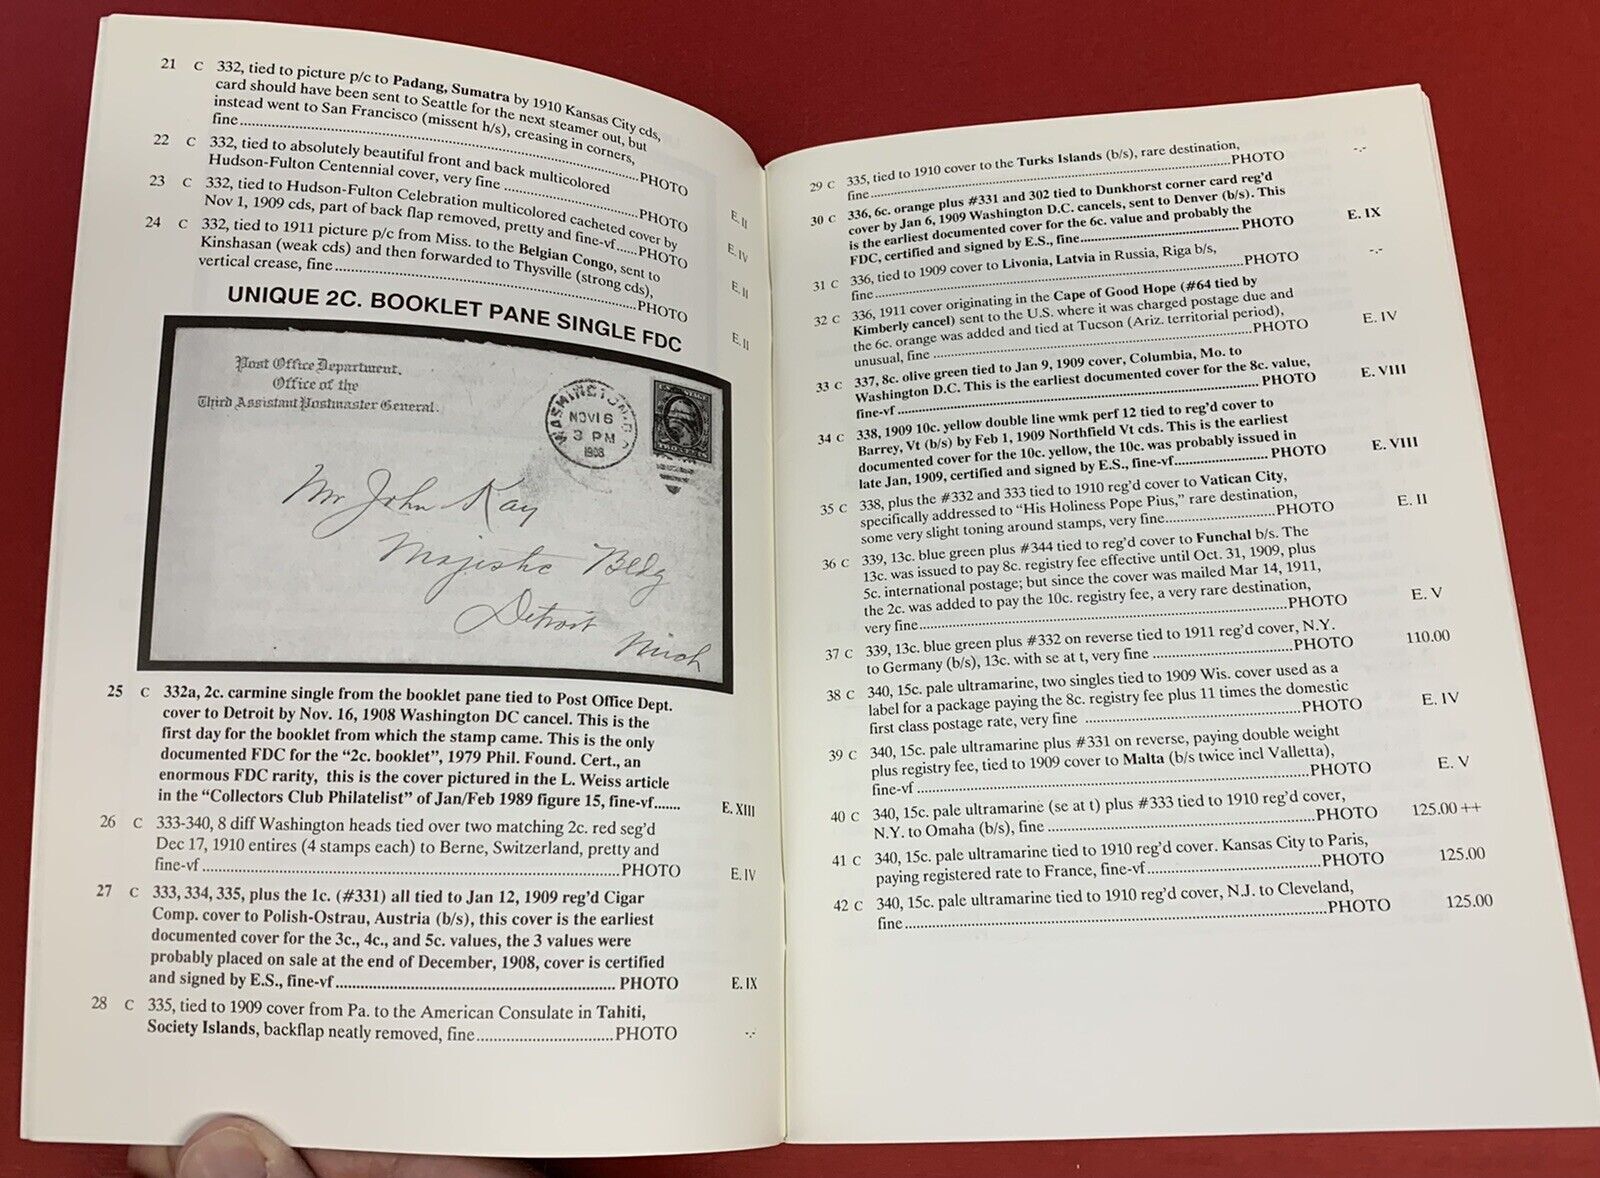 21 C 332, tied to picture p/c to Padang, Sumatra by 1910 Kansas City cds,
card should have been sent to Seattle for the next steamer out, but
instead went to San Francisco (missent h/s), creasing in corners,
fine..........PHOTO E. II
22 C 332, tied to absolutely beautiful front and back multicolored
Hudson-Fulton Centennial cover, very fine ..........PHOTO E. IV
23 C 332, tied to Hudson-Fulton Celebration multicolored cacheted cover by
Nov 1, 1909 cds, part of back flap removed, pretty and fine-vf.....PHOTO E. II
24 C 332, tied to 1911 picture p/c from Miss. to the Belgian Congo, sent to
Kinshasan (weak cds) and then forwarded to Thysville (strong cds),
vertical crease, fine..........PHOTO E. II
UNIQUE 2C. BOOKLET PANE SINGLE FDC
Post Office Department,
Office of the
Third Assistant Postmaster General.
WASHINGTON, D.C.
NOV 16
3 PM
1908
Mr John Kay
Majestic Bldg
Detroit
Mich
25 C 332a, 2c. carmine single from the booklet pane tied to Post Office Dept.
cover to Detroit by Nov. 16, 1908 Washington DC cancel. This is the
first day for the booklet from which the stamp came. This is the only
documented FDC for the “2c. booklet”, 1979 Phil. Found. Cert., an
enormous FDC rarity, this is the cover pictured in the L. Weiss article
in the “Collectors Club Philatelist” of Jan/Feb 1989 figure 15, fine-vf....... E. XIII
26 C 333-340, 8 diff Washington heads tied over two matching 2c. red seg'd
Dec 17, 1910 entires (4 stamps each) to Berne, Switzerland, pretty and
fine-vf..........PHOTO E. IV
27 C 333, 334, 335, plus the 1c. (#331) all tied to Jan 12, 1909 reg'd Cigar
Comp. cover to Polish-Ostrau, Austria (b/s), this cover is the earliest
documented cover for the 3c., 4c., and 5c. values, the 3 values were
probably placed on sale at the end of December, 1908, cover is certified
and signed by E.S., fine-vf.......... PHOTO E. IX
28 C 335, tied to 1909 cover from Pa. to the American Consulate in Tahiti,
Society Islands, backflap neatly removed, fine..........PHOTO -.-
29 C 335, tied to 1910 cover to the Turks Islands (b/s), rare destination,
fine..........PHOTO -.-
30 C 336, 6c. orange plus #331 and 302 tied to Dunkhorst corner card reg'd
cover by Jan 6, 1909 Washington D.C. cancels, sent to Denver (b/s). This
is the earliest documented cover for the 6c. value and probably the
FDC, certified and signed by E.S., fine.......... PHOTO E. IX
31 C 336, tied to 1909 cover to Livonia, Latvia in Russia, Riga b/s,
fine..........PHOTO -.-
32 C 336, 1911 cover originating in the Cape of Good Hope (#64 tied by
Kimberly cancel) sent to the U.S. where it was charged postage due and
the 6c. orange was added and tied at Tucson (Ariz. territorial period),
unusual, fine ..........PHOTO E. IV
33 C 337, 8c. olive green tied to Jan 9, 1909 cover, Columbia, Mo. to
Washington D.C. This is the earliest documented cover for the 8c. value,
fine-vf .......... PHOTO E. VIII
34 C 338, 1909 10c. yellow double line wmk perf 12 tied to reg'd cover to
Barrey, Vt (b/s) by Feb 1, 1909 Northfield Vt cds. This is the earliest
documented cover for the 10c. yellow, the 10c. was probably issued in
late Jan, 1909, certified and signed by E.S., fine-vf.......... PHOTO E. VIII
35 C 338, plus the #332 and 333 tied to 1910 reg'd cover to Vatican City,
specifically addressed to “His Holiness Pope Pius,” rare destination,
some very slight toning around stamps, very fine..........PHOTO E. II
36 C 339, 13c. blue green plus #344 tied to reg'd cover to Funchal b/s. The
13c. was issued to pay 8c. registry fee effective until Oct. 31, 1909, plus
5c. international postage; but since the cover was mailed Mar 14, 1911,
the 2c. was added to pay the 10c. registry fee, a very rare destination,
very fine..........PHOTO E. V
37 C 339, 13c. blue green plus #332 on reverse tied to 1911 reg'd cover, N.Y.
to Germany (b/s), 13c. with se at t, very fine ..........PHOTO 110.00
38 C 340, 15c. pale ultramarine, two singles tied to 1909 Wis. cover used as a
label for a package paying the 8c. registry fee plus 11 times the domestic
first class postage rate, very fine ..........PHOTO E. IV
39 C 340, 15c. pale ultramarine plus #331 on reverse, paying double weight
plus registry fee, tied to 1909 cover to Malta (b/s twice incl Valletta),
fine-vf ..........PHOTO E. V
40 C 340, 15c. pale ultramarine (se at t) plus #333 tied to 1910 reg'd cover,
N.Y. to Omaha (b/s), fine ..........PHOTO 125.00 ++
41 C 340, 15c. pale ultramarine tied to 1910 reg'd cover. Kansas City to Paris,
paying registered rate to France, fine-vf..........PHOTO 125.00
42 C 340, 15c. pale ultramarine tied to 1910 reg'd cover, N.J. to Cleveland,
fine..........PHOTO 125.00